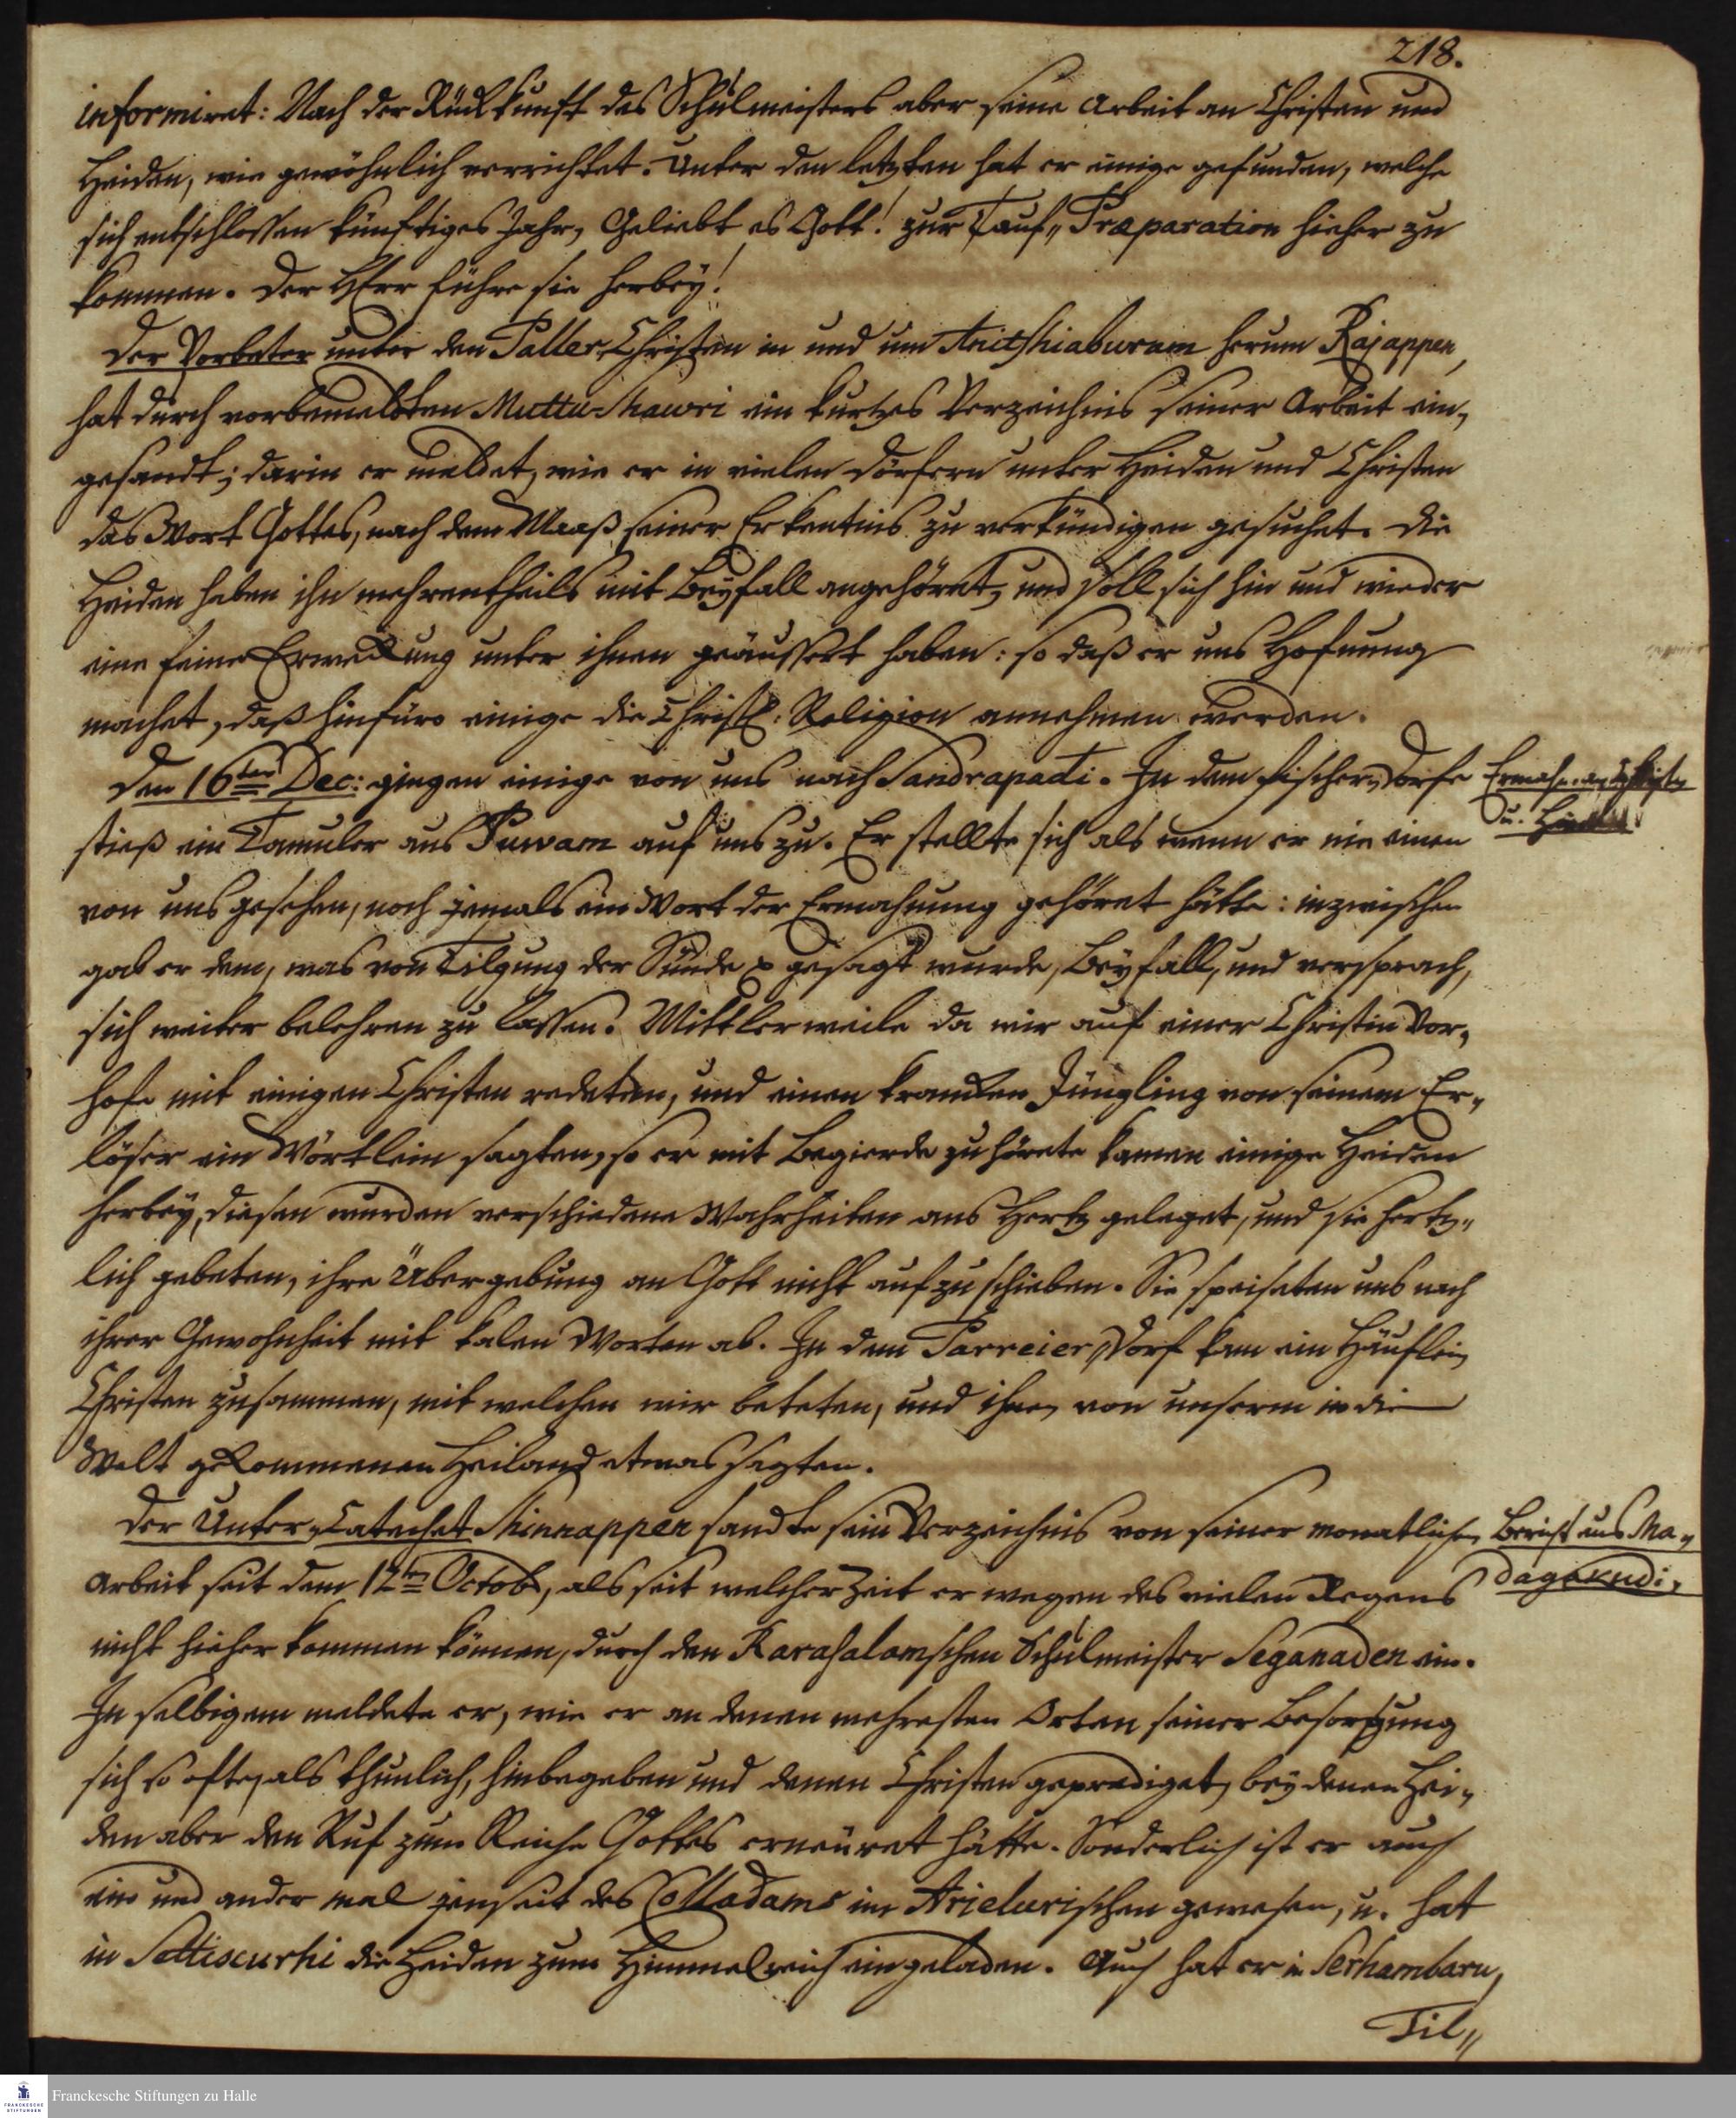 218.
informiret: Nach der Rückkunft des Schulmeisters aber seine Arbeit an Christen und
Heiden, wie gewöhnlich verrichtet. Unter den letzten hat er einige gefunden, welche
sich entschlossen künftiges Jahr, Geliebt es Gott! zur Tauf„Præparation hieher zu
kommen. Der HErr führe sie herbey!
Der Vorbeter unter den Paller Christen in und um Anitshiaburam herum Rajappen,
hat durch vorbemeldten Muttu-Shawri ein kurtzes Verzeichnis seiner Arbeit ein„
gesandt; darin er meldet, wie er in vielen Dörfern unter Heiden und Christen
das Wort Gottes, nach dem Maaß seiner Erkentnis zu verkündigen gesuchet. Die
Heiden haben ihn mehrentheils mit Beyfall angehöret, und soll sich hin und wieder
eine feine Erweckung unter ihnen geäussert haben: so daß er uns Hofnung
machet, daß hinfüro einige die Christl: Religion annehmen werden.
Den 16ten Dec: gingen einige von uns nach Sandrapadi. In dem Fischer„Dorfe
Ermahn. an Christen
u. Heiden
stieß ein Tamuler aus Puwam auf uns zu. Er stellte sich als wenn er nie einen
von uns gesehen, noch jemals ein Wort der Ermahnung gehöret hätte: inzwischen
gab er dem, was von Tilgung der Sünde gesagt wurde, Beyfall, und versprach,
sich weiter belehren zu lassen. Mittlerweile da wir auf einer Christin Vor„
hofe mit einigen Christen redeten, und einen krancken Jüngling von seinem Er„
löser ein Wörtlein sagten, so er mit Begierde zuhörete kamen einige Heiden
herbey, diesen wurden verschiedene Wahrheiten ans Hertz geleget, und sie hertz„
lich gebeten, ihre Übergebung an Gott nicht aufzuschieben. Sie speiseten uns nach
ihrer Gewohnheit mit kalen Worten ab. In dem Parreier„Dorf kam ein Häuflein
Christen zusammen, mit welchen wir beteten, und ihnen von unserm in die
Welt gekommenen Heiland etwas sagten.
Der Unter„Catechet Shinnappen sandte sein Verzeichnis von seiner monatlichen
Bericht aus Ma„
dagakudi.
Arbeit seit dem 12ten Octob, als seit welcher Zeit er wegen des vielen Regens
nicht hieher kommen können, durch den Karasalamschen Schulmeister Seganaden ein.
In selbigem meldete er, wie er an denen mehresten Orten seiner Besorgung
sich so ofte, als thunlich, hinbegeben und denen Christen geprediget, bey denen Hei„
den aber den Ruf zum Reiche Gottes erneuret hätte. Sonderlich ist er auch
ein und ander mal jenseit des Colladams im Arielurischen gewesen, u. hat
in Settiscurhi die Heiden zum Himmelreich eingeladen. Auch hat er in Serhambaru,
Til„
Franckesche Stiftungen zu Halle
FRANCKESCHE
STIFTUNGEN